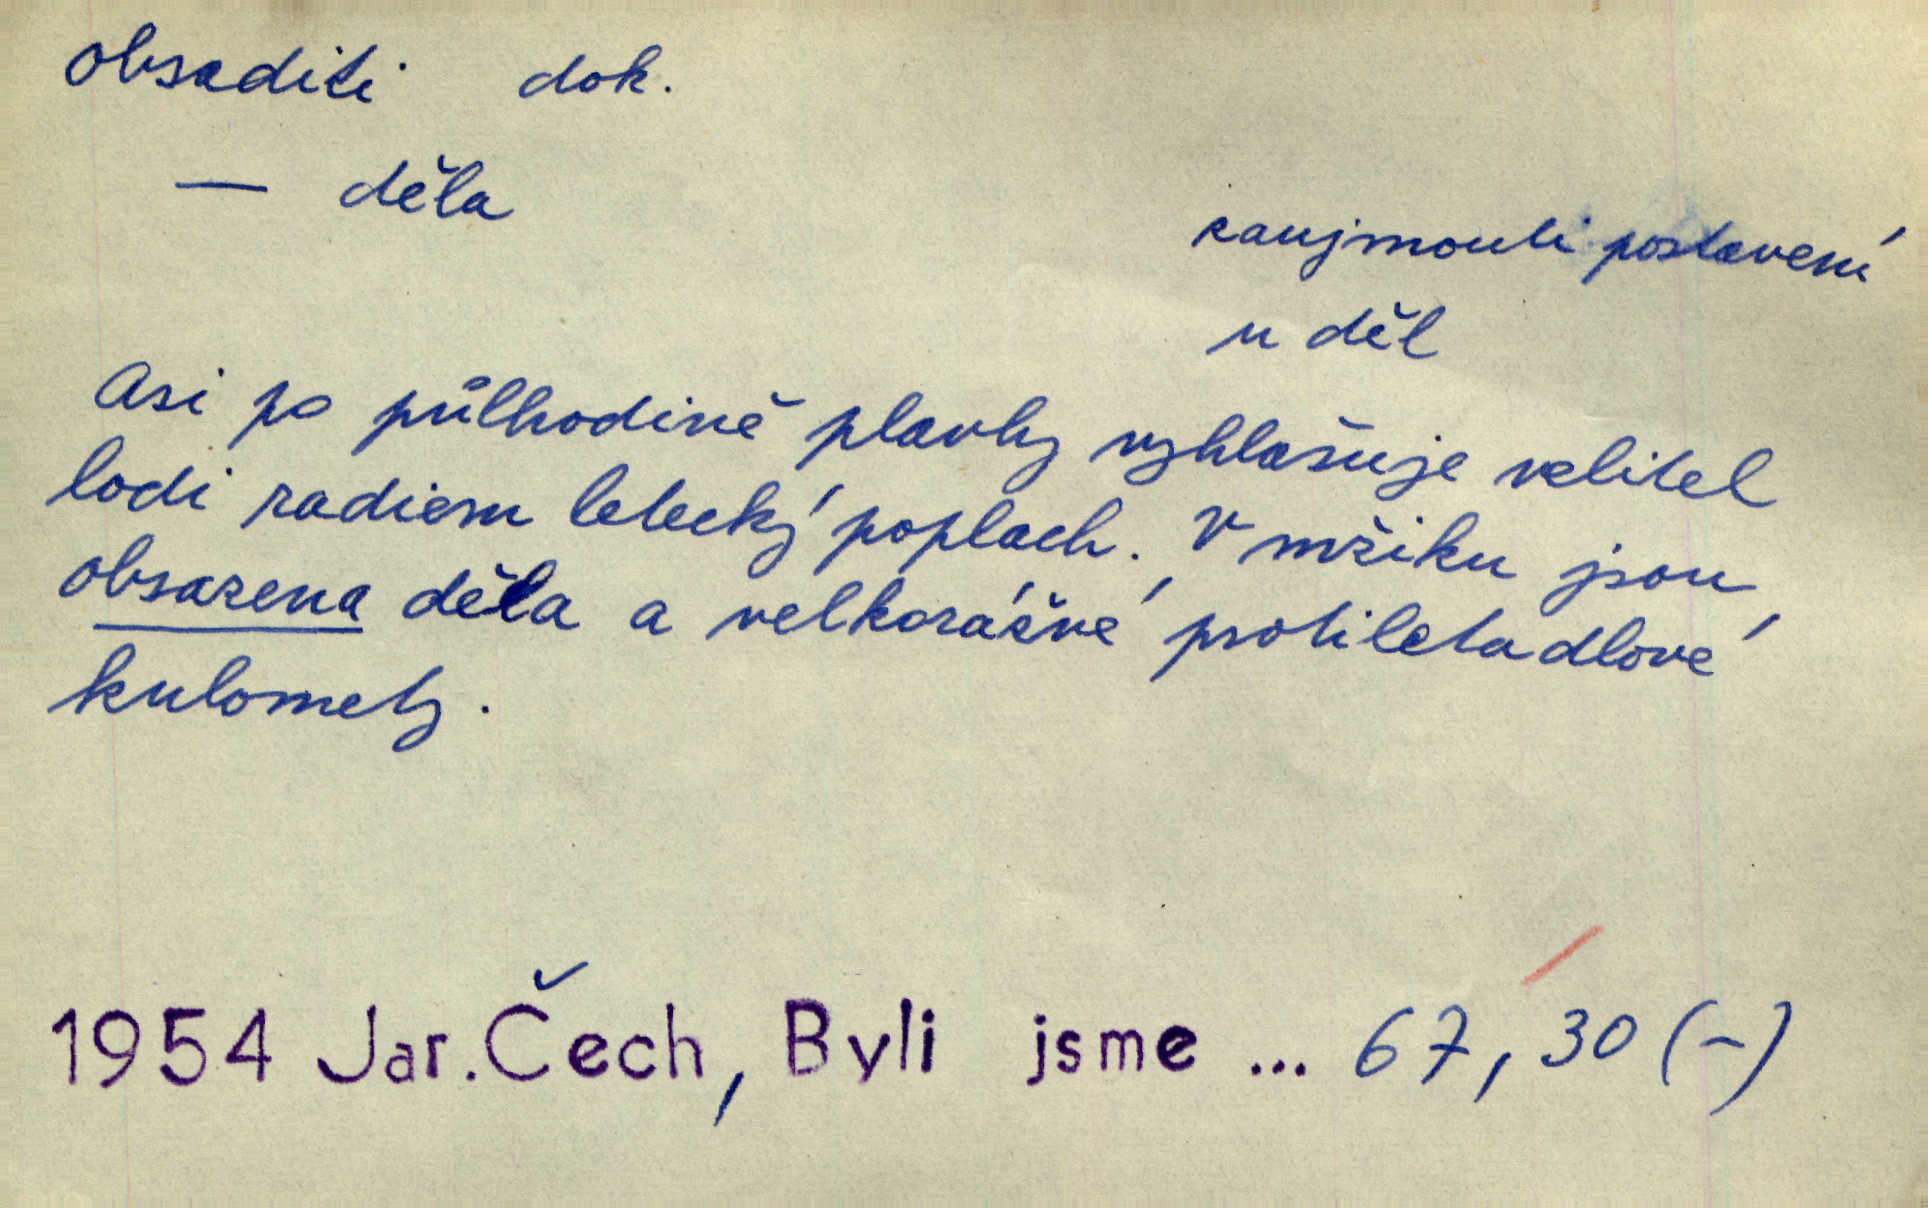 obsaditi dok.
— děla
zaujmouti postavení
u děl
Asi po půlhodině plavby vyhlašuje velitel
lodi radiem letecký poplach. V mžiku jsou
obsazena děla a velkorážné protiletadlové
kulomety.
1954 Jar. Čech, Byli jsme ... 67, 30 (–)